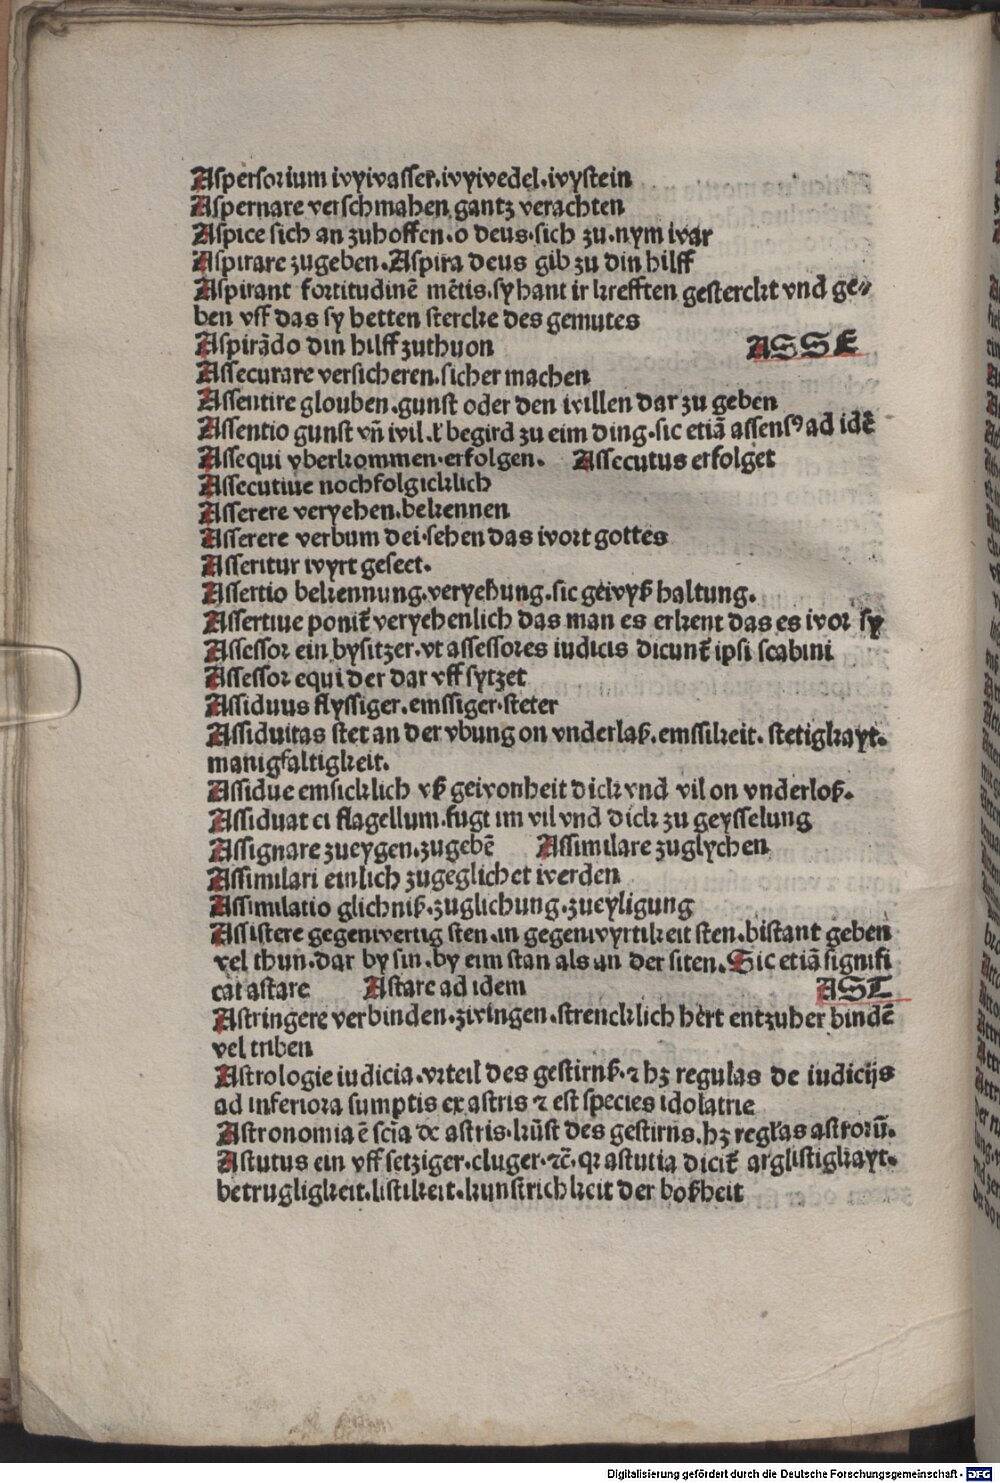 Aspersorium wywasser.wywedel.wystein
Aspernare verschmahen gantz verachten
Aspice sich an zuhoffen.o deus.sich zu.nym war
Aspirare zugeben.Aspira deus gib zu din hilff
Aspirant fortitudinē mētis.sy hant ir krefften gesterckt vnd ge⸗
ben vff das sy hetten stercke des gemutes
Aspirādo din hilff zuthuon ASSE
Assecurare versicheren.sicher machen
Assentire glouben.gunst oder den willen dar zu geben
Assentio gunst vñ wil.ł begird zu eim ding.sic etiā assensꝰ ad idē
Assequi vberkommen.erfolgen. Assecutus erfolget
Assecutiue nochfolgicklich
Asserere veryehen.bekennen
Asserere verbum dei.sehen das wort gottes
Asseritur wyrt geseet.
Assertio bekennung.veryehung.sic gewyß haltung.
Assertiue ponit᷑ veryehenlich das man es erkent das es wor sy
Assessor ein bysitzer.vt assessores iudicis dicunt᷑ ipsi scabini
Assessor equi der dar vff sytzet
Assiduus flyssiger.emssiger.steter
Assiduitas stet an der vbung on vnderlaß.emssikeit.stetigkayt.
manigfaltigkeit.
Assidue emsicklich vß gewonheit dick vnd vil on vnderloß.
Assiduat ei flagellum.fugt im vil vnd dick zu geysselung
Assignare zueygen.zugebē Assimilare zuglychen
Assimilari einlich zugeglichet werden
Assimilatio glichniß.zuglichung.zueyligung
Assistere gegenwertig sten.in gegenwyrtikeit sten.bistant geben
vel thun.dar by sin.by eim stan als an der siten.Sic etiā signifi
cat astare Astare ad idem AST
Astringere verbinden.zwingen.strencklich hert entzuher bindē
vel triben
Astrologie iudicia.vrteil des gestirnß.⁊ hꝫ regulas de iudicijs
ad inferiora sumptis ex astris ⁊ est species idolatrie
Astronomia ē scīa de astris.kūst des gestirns.hꝫ regłas astrorū.
Astutus ein vff setziger.cluger.⁊c̄.qꝛ astutia dicit᷑ arglistigkayt.
betrugligkeit.listikeit.kunstrichkeit der boßheit
Digitalisierung gefördert durch die Deutsche Forschungsgemeinschaft - DFG